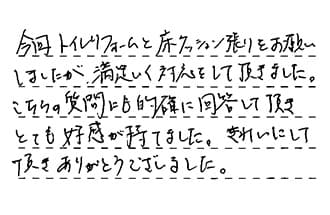 今回トイレリフォームと床クッション張りをお願い
しましたが、満足いく対応をして頂きました。
こちらの質問にも的確に回答して頂き
とても好感が持てました。きれいにして
頂きありがとうございました。